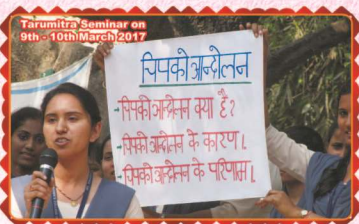 Tarumitra Seminar on
9th - 10th March 2017
चिपको आन्दोलन
- चिपको आन्दोलन क्या है?
- चिपको आन्दोलन के कारण।
- चिपको आन्दोलन के परिणाम।